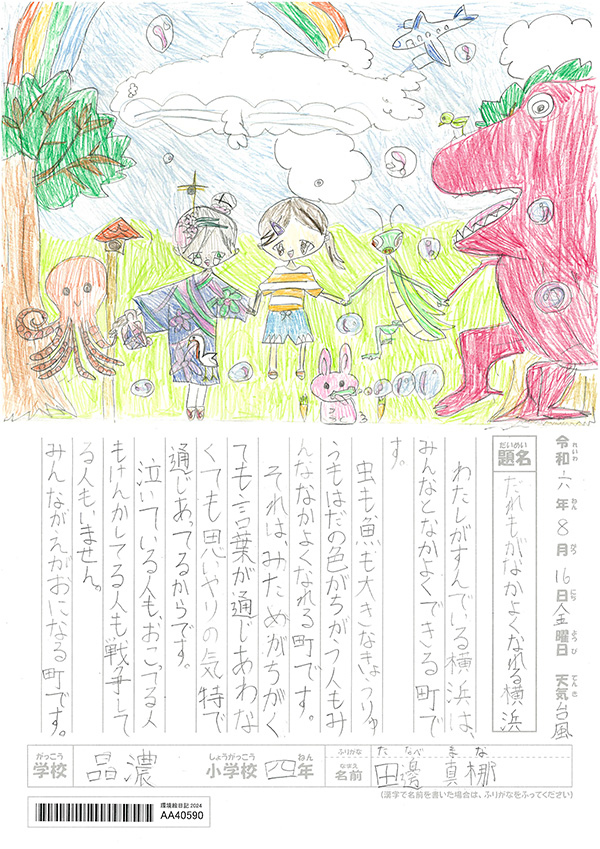 令和六年8月16日金曜日 天気台風
れいわ ねん がつ にち ようび てんき
だいめい
題名
だれもがなかよくなれる横浜
わたしがすんでいる横浜は、
みんなとなかよくできる町で
す。
虫も魚も大きなきょうりゅ
うもはだの色がちがう人もみ
んななかよくなれる町です。
それは、みためがちがく
ても言葉が通じあわな
くても思いやりの気持で
通じあってるからです。
泣いている人も、おこってる人
もけんかしてる人も戦争して
る人もいません。
みんながえがおになる町です。
がっこう しょうがっこう ねん
学校 品濃 小学校 四年
ふりがな たなべ まな
なまえ
名前 田邉 真梛
(漢字で名前を書いた場合は、ふりがなをふってください)
環境絵日記2024
AA40590